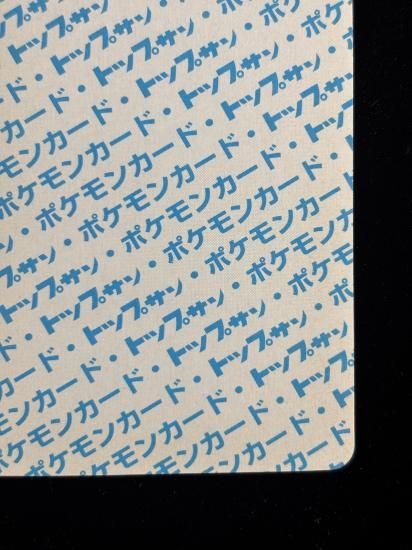 トップサン
ド・トップサン・ポケ
カード・トップサン・ポケモン
モンカード・トップサン・ポケモン
ポケモンカード・トップサン・ポケモ
・ポケモンカード・トップサン・ポ
サン・ポケモンカード・トップサン
トップサン・ポケモンカード・ト
・トップサン・ポケモンカード
ド・トップサン・ポケモンカ
カード・トップサン・ポケモ
モンカード・トップサン・ポ
ポケモンカード・トップサン
ポケモンカード・ト
ポケモンカード